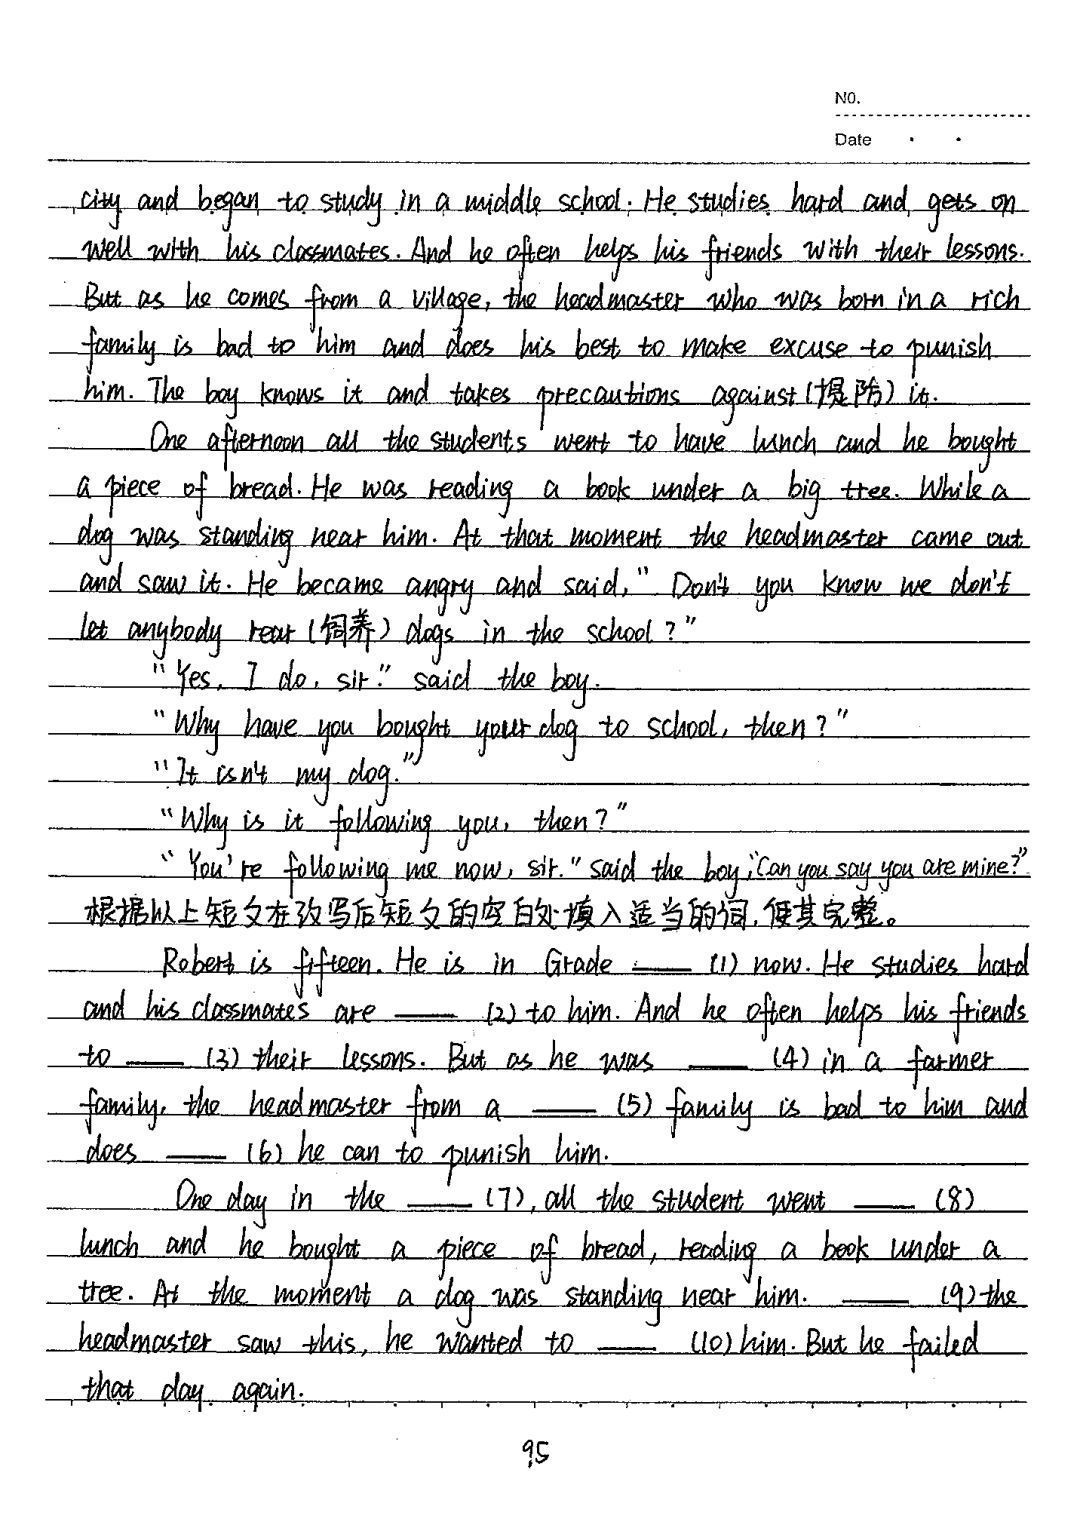 NO.
Date
city and began to study in a middle school. He studies hard and gets on
well with his classmates. And he often helps his friends with their lessons.
But as he comes from a village, the headmaster who was born in a rich
family is bad to him and does his best to make excuse to punish
him. The boy knows it and takes precautions against (提防) it.
One afternoon all the students went to have lunch and he bought
a piece of bread. He was reading a book under a big tree. While a
dog was standing near him. At that moment the headmaster came out
and saw it. He became angry and said, " Don't you know we don't
let anybody rear (饲养) dogs in the school ? "
"Yes, I do, sir." said the boy.
"Why have you bought your dog to school, then ? "
"It isn't my dog."
"Why is it following you, then ? "
" You're following me now, sir. " said the boy, "Can you say you are mine?"
根据以上短文在改写后短文的空白处填入适当的词,使其完整。
Robert is fifteen. He is in Grade ____ (1) now. He studies hard
and his classmates are ____ (2) to him. And he often helps his friends
to ____ (3) their lessons. But as he was ____ (4) in a farmer
family, the headmaster from a ____ (5) family is bad to him and
does ____ (6) he can to punish him.
One day in the ____ (7), all the student went ____ (8)
lunch and he bought a piece of bread, reading a book under a
tree. At the moment a dog was standing near him. ____ (9) the
headmaster saw this, he wanted to ____ (10) him. But he failed
that day again.
95